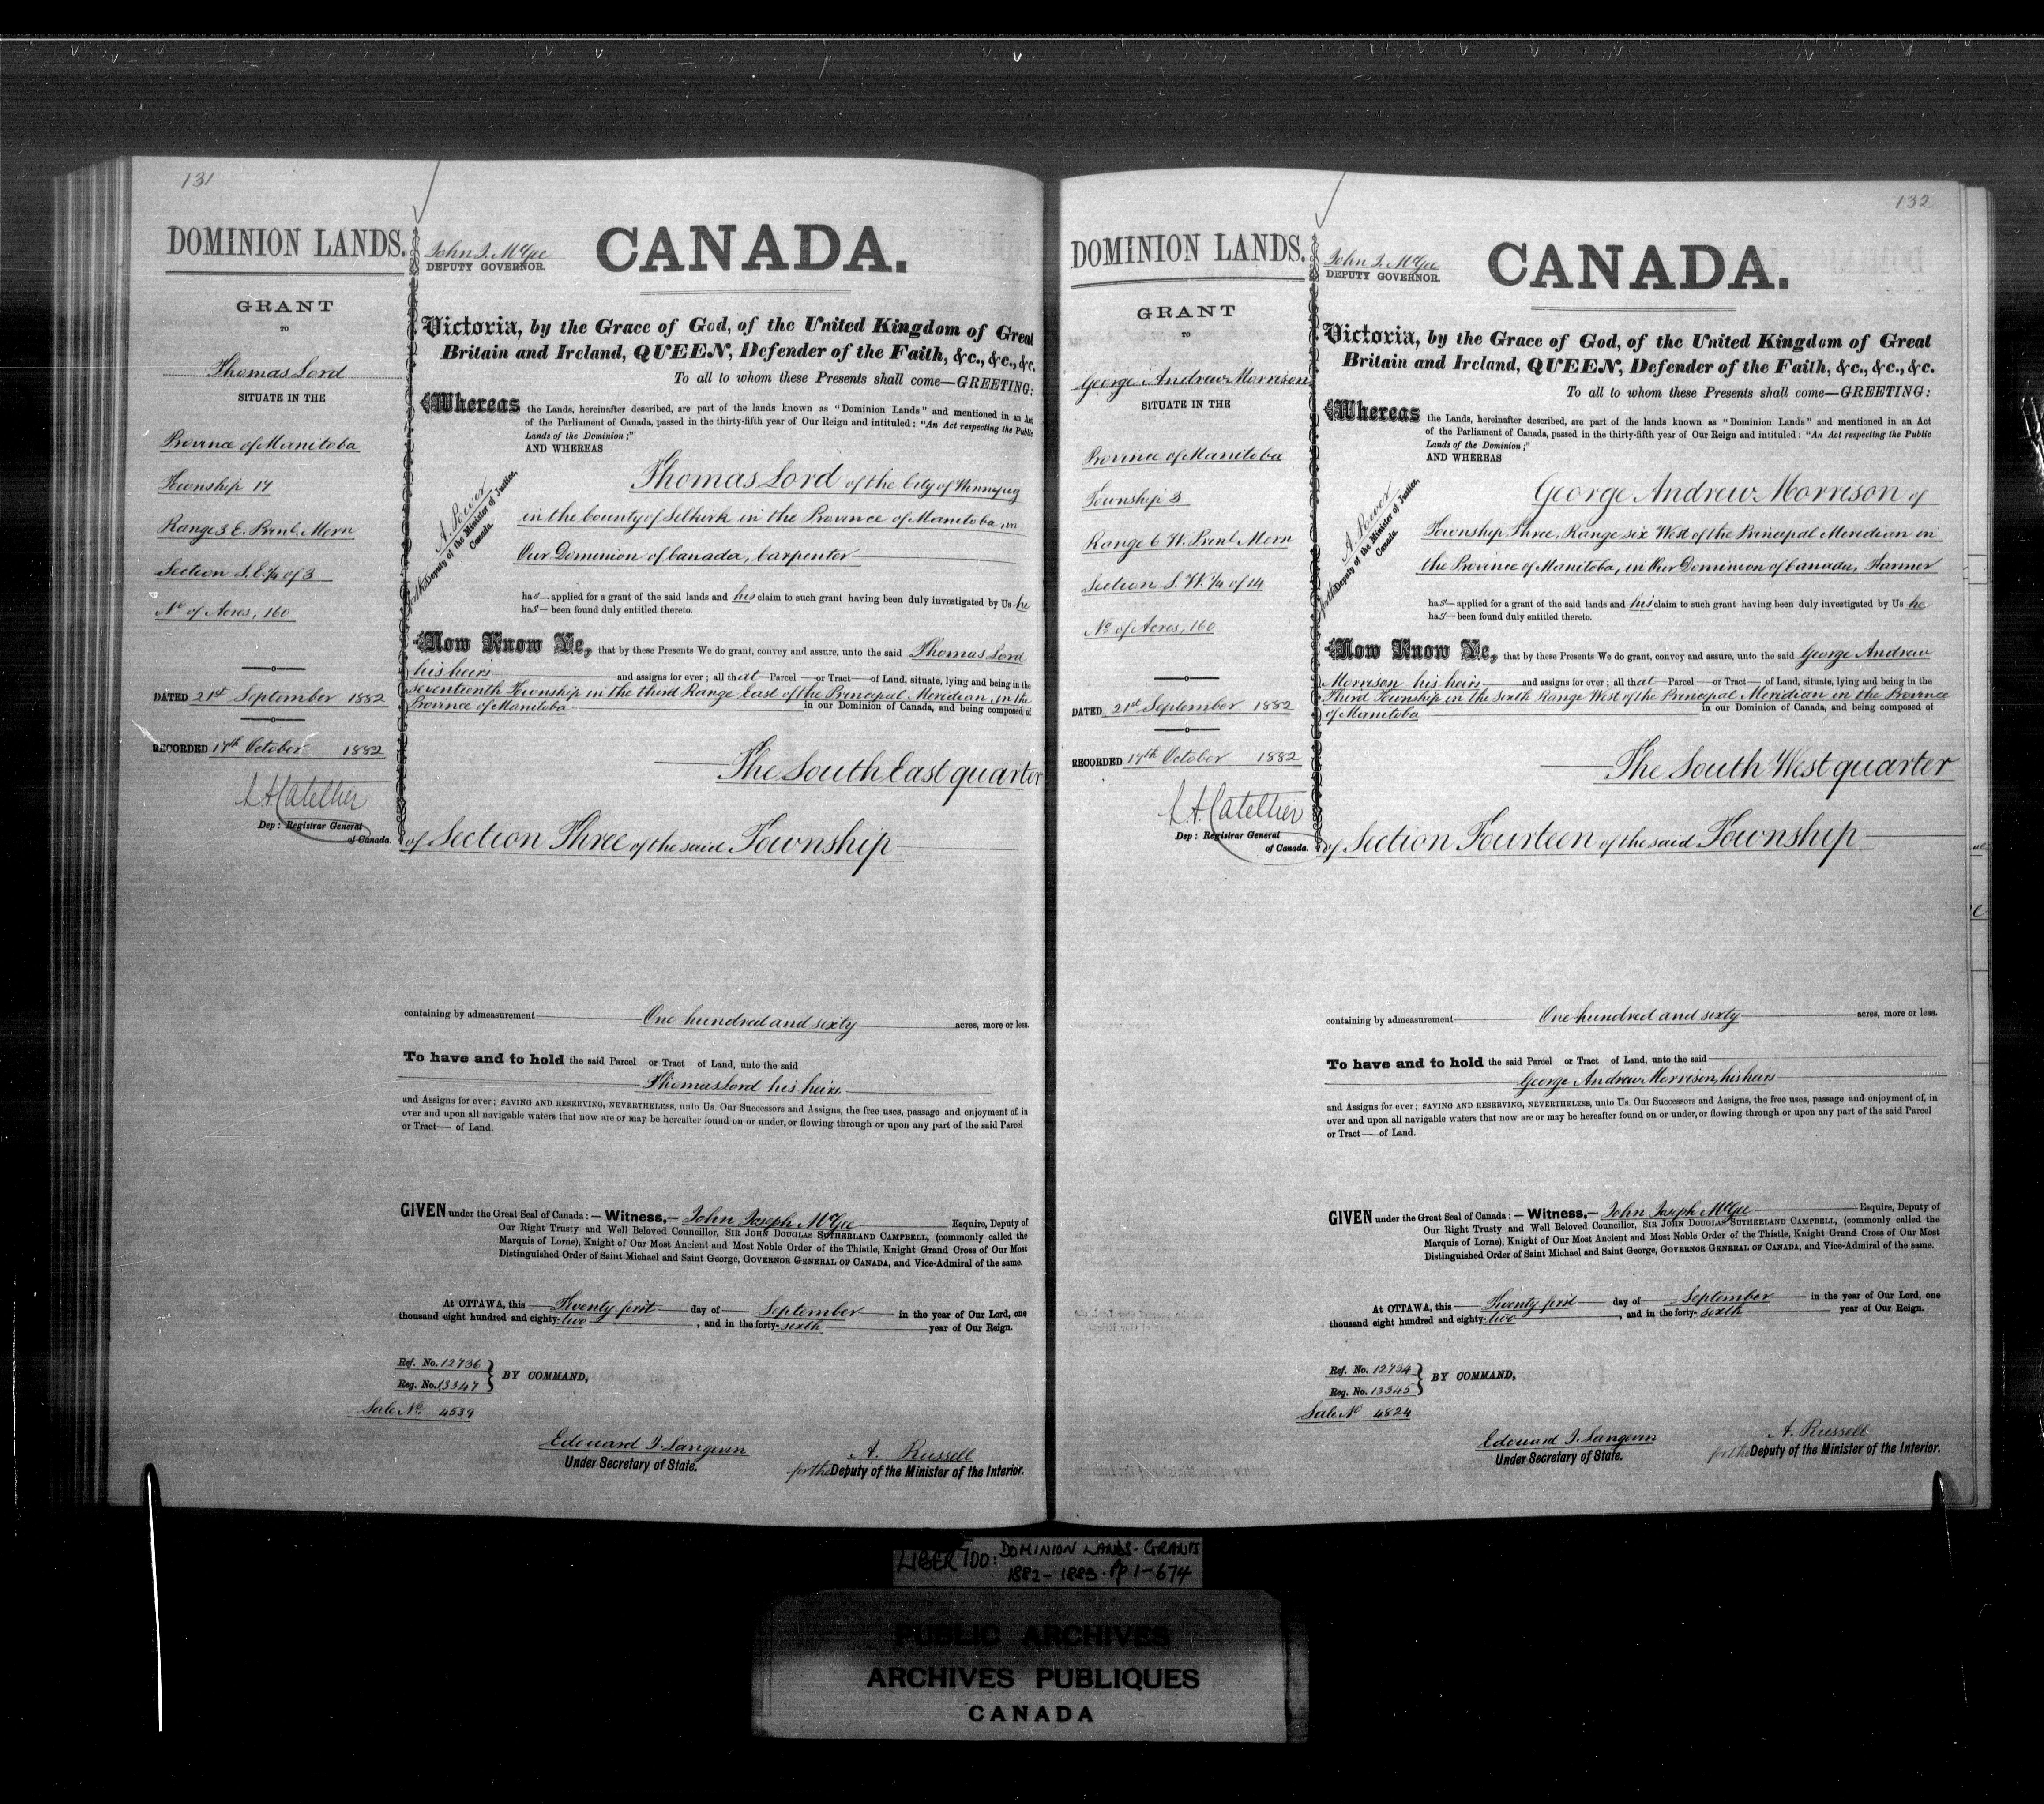 131
DOMINION LANDS.
GRANT
TO
Thomas Lord
SITUATE IN THE
Province of Manitoba
Township 17
Range 3 E. Prinl. Mern
Section S.E. 1/4 of 3
No of Acres, 160
DATED 21st September 1882
RECORDED 17th October 1882
L A Catellier
Dep: Registrar General
of Canada.
John J. McGee
DEPUTY GOVERNOR.
CANADA.
Victoria, by the Grace of God, of the United Kingdom of Great
Britain and Ireland, QUEEN, Defender of the Faith, &c., &c., &c.
To all to whom these Presents shall come—GREETING:
Whereas the Lands, hereinafter described, are part of the lands known as "Dominion Lands" and mentioned in an Act
of the Parliament of Canada, passed in the thirty-fifth year of Our Reign and intituled: "An Act respecting the Public
Lands of the Dominion;"
AND WHEREAS
A. Power
for the Deputy of the Minister of Justice,
Canada.
Thomas Lord of the City of Winnipeg
in the County of Selkirk in the Province of Manitoba, in
Our Dominion of Canada, Carpenter
has applied for a grant of the said lands and his claim to such grant having been duly investigated by Us he
has been found duly entitled thereto.
Now Know Ye, that by these Presents We do grant, convey and assure, unto the said Thomas Lord
his heirs and assigns for ever; all that Parcel or Tract of Land, situate, lying and being in the
seventeenth Township in the third Range East of the Principal Meridian, in the
Province of Manitoba in our Dominion of Canada, and being composed of
The South East quarter
of Section Three of the said Township
containing by admeasurement One hundred and sixty acres, more or less.
To have and to hold the said Parcel or Tract of Land, unto the said
Thomas Lord his heirs
and Assigns for ever; SAVING AND RESERVING, NEVERTHELESS, unto Us. Our Successors and Assigns, the free uses, passage and enjoyment of, in
over and upon all navigable waters that now are or may be hereafter found on or under, or flowing through or upon any part of the said Parcel
or Tract— of Land.
GIVEN under the Great Seal of Canada:—Witness,— John Joseph McGee Esquire, Deputy of
Our Right Trusty and Well Beloved Councillor, SIR JOHN DOUGLAS SUTHERLAND CAMPBELL, (commonly called the
Marquis of Lorne), Knight of Our Most Ancient and Most Noble Order of the Thistle, Knight Grand Cross of Our Most
Distinguished Order of Saint Michael and Saint George, GOVERNOR GENERAL OF CANADA, and Vice-Admiral of the same.
At OTTAWA, this Twenty first day of September in the year of Our Lord, one
thousand eight hundred and eighty-two, and in the forty-sixth year of Our Reign.
Ref. No. 12736
Reg. No. 13347
BY COMMAND,
Sale No. 4539
Edouard J. Langevin
Under Secretary of State.
A. Russell
for the Deputy of the Minister of the Interior.
132
DOMINION LANDS.
GRANT
TO
George Andrew Morrison
SITUATE IN THE
Province of Manitoba
Township 3
Range 6 W. Prinl. Mern
Section S. W. 1/4 of 14
No of Acres, 160
DATED 21st September 1882
RECORDED 17th October 1882
L. A. Catellier
Dep: Registrar General
of Canada.
John J. McGee
DEPUTY GOVERNOR.
CANADA.
Victoria, by the Grace of God, of the United Kingdom of Great
Britain and Ireland, QUEEN, Defender of the Faith, &c., &c., &c.
To all to whom these Presents shall come—GREETING:
Whereas the Lands, hereinafter described, are part of the lands known as "Dominion Lands" and mentioned in an Act
of the Parliament of Canada, passed in the thirty-fifth year of Our Reign and intituled: "An Act respecting the Public
Lands of the Dominion;"
AND WHEREAS
A. Power
for the Deputy of the Minister of Justice,
Canada.
George Andrew Morrison of
Township Three, Range six West of the Principal Meridian in
the Province of Manitoba, in Our Dominion of Canada, Farmer
has applied for a grant of the said lands and his claim to such grant having been duly investigated by Us he
has been found duly entitled thereto.
Now Know Ye, that by these Presents We do grant, convey and assure, unto the said George Andrew
Morrison his heirs and assigns for ever; all that Parcel or Tract of Land, situate, lying and being in the
Third Township in the Sixth Range West of the Principal Meridian in the Province
of Manitoba in our Dominion of Canada, and being composed of
The South West quarter
of Section Fourteen of the said Township
containing by admeasurement One hundred and sixty acres, more or less.
To have and to hold the said Parcel or Tract of Land, unto the said
George Andrew Morrison, his heirs
and Assigns for ever; SAVING AND RESERVING, NEVERTHELESS, unto Us. Our Successors and Assigns, the free uses, passage and enjoyment of, in
over and upon all navigable waters that now are or may be hereafter found on or under, or flowing through or upon any part of the said Parcel
or Tract—of Land.
GIVEN under the Great Seal of Canada:—Witness,— John Joseph McGee Esquire, Deputy of
Our Right Trusty and Well Beloved Councillor, SIR JOHN DOUGLAS SUTHERLAND CAMPBELL, (commonly called the
Marquis of Lorne), Knight of Our Most Ancient and Most Noble Order of the Thistle, Knight Grand Cross of Our Most
Distinguished Order of Saint Michael and Saint George, GOVERNOR GENERAL OF CANADA, and Vice-Admiral of the same.
At OTTAWA, this Twenty first day of September in the year of Our Lord, one
thousand eight hundred and eighty-two, and in the forty-sixth year of Our Reign.
Ref. No. 12734
Reg. No. 13345
BY COMMAND,
Sale No 4824
Edouard J. Langevin
Under Secretary of State.
A. Russell
for the Deputy of the Minister of the Interior.
LIBER 100: DOMINION LANDS-GRANTS
1882-1883. Pp 1-674
PUBLIC ARCHIVES
ARCHIVES PUBLIQUES
CANADA